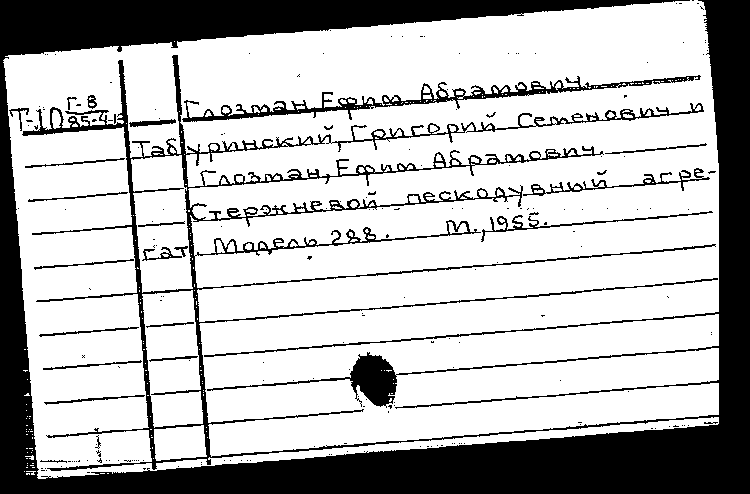 Т-10 Г-8 Глозман, Ефим Абрамович.
Табуринский, Григорий Семенович и
Глозман, Ефим Абрамович.
Стержневой пескодувный агре-
гат. Модель 288. М., 1955.